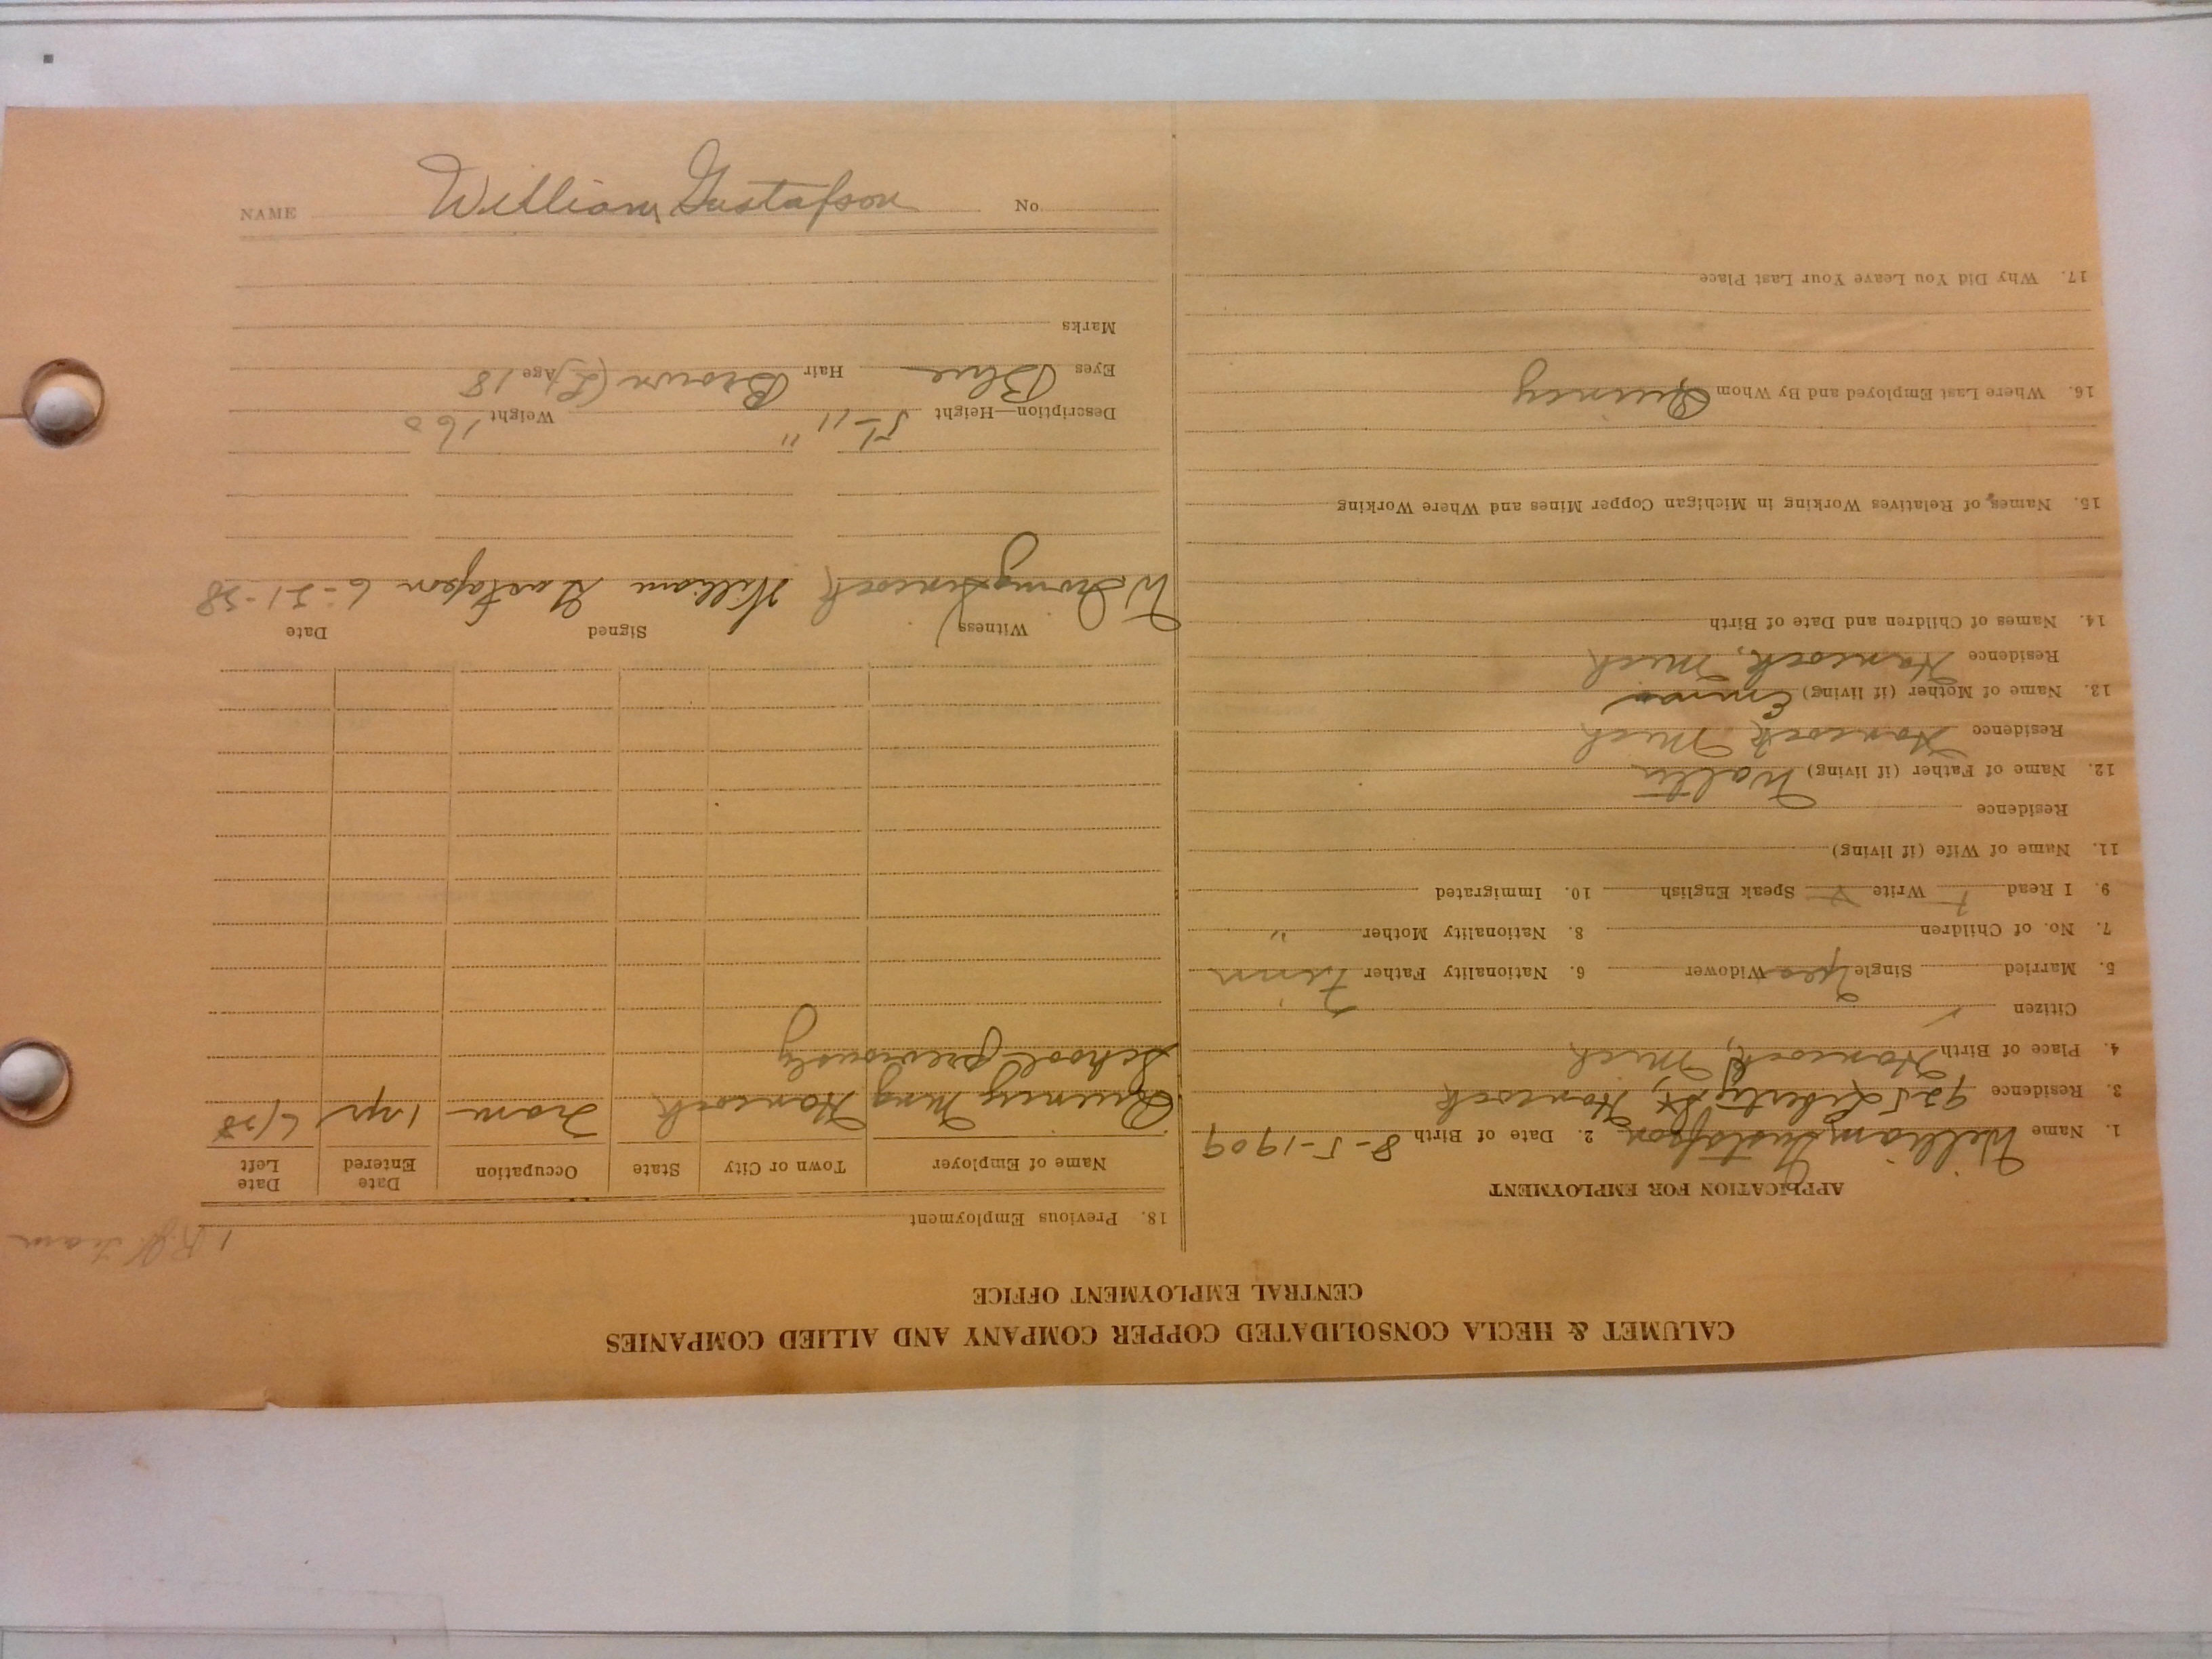 CALUMET & HECLA CONSOLIDATED COPPER COMPANY AND ALLIED COMPANIES
CENTRAL EMPLOYMENT OFFICE
APPLICATION FOR EMPLOYMENT
1. Name William Gustafson 2. Date of Birth 8-5-1909
3. Residence 925 Liberty St, Hancock
4. Place of Birth Hancock, Mich
Citizen ✓
5. Married Single Yes Widower 6. Nationality Father Finn
7. No. of Children 8. Nationality Mother "
9. I Read Write Speak English 10. Immigrated
11. Name of Wife (if living)
Residence
12. Name of Father (if living) Walter
Residence Hancock, Mich
13. Name of Mother (if living) Emma
Residence Hancock, Mich
14. Names of Children and Date of Birth
15. Names, of Relatives Working in Michigan Copper Mines and Where Working
16. Where Last Employed and By Whom Quincy
17. Why Did You Leave Your Last Place
1 team
18. Previous Employment
Name of Employer Town or City State Occupation Date Entered Date Left
Quincy Mng Hancock Tram 1 yr 6/28
School previously
Witness Signed Date
W. Irving William Gustafson 6-21-28
Description—Height 5'-11" Weight 160
Eyes Blue Hair Brown (L) Age 18
Marks
NAME William Gustafson No.